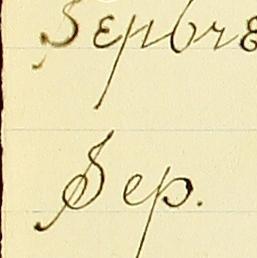 Sepbre
Sep.